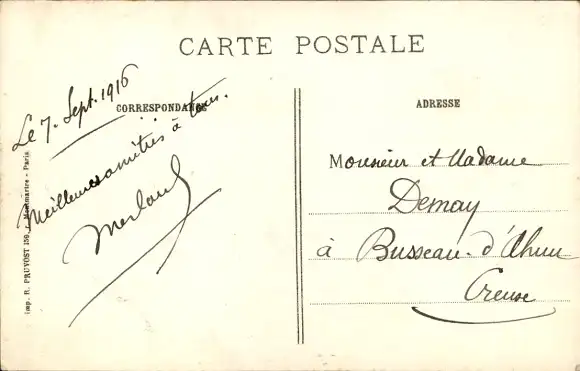 CARTE POSTALE
CORRESPONDANCE
Le 7. Sept. 1916
Meilleures amitiés à tous.
ADRESSE
Monsieur et Madame
Demay
à Busseau-d'Ahun
Creuse
Imp. R. PRUVOST 159, r. Montmartre - Paris